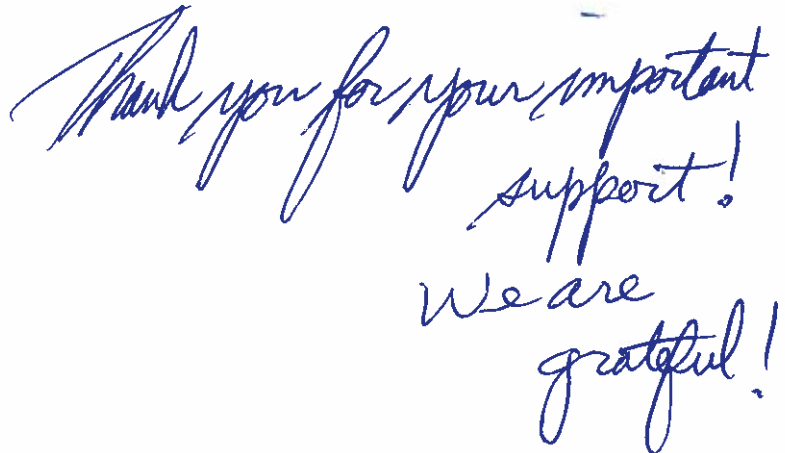 Thank you for your important
support!
We are
grateful!